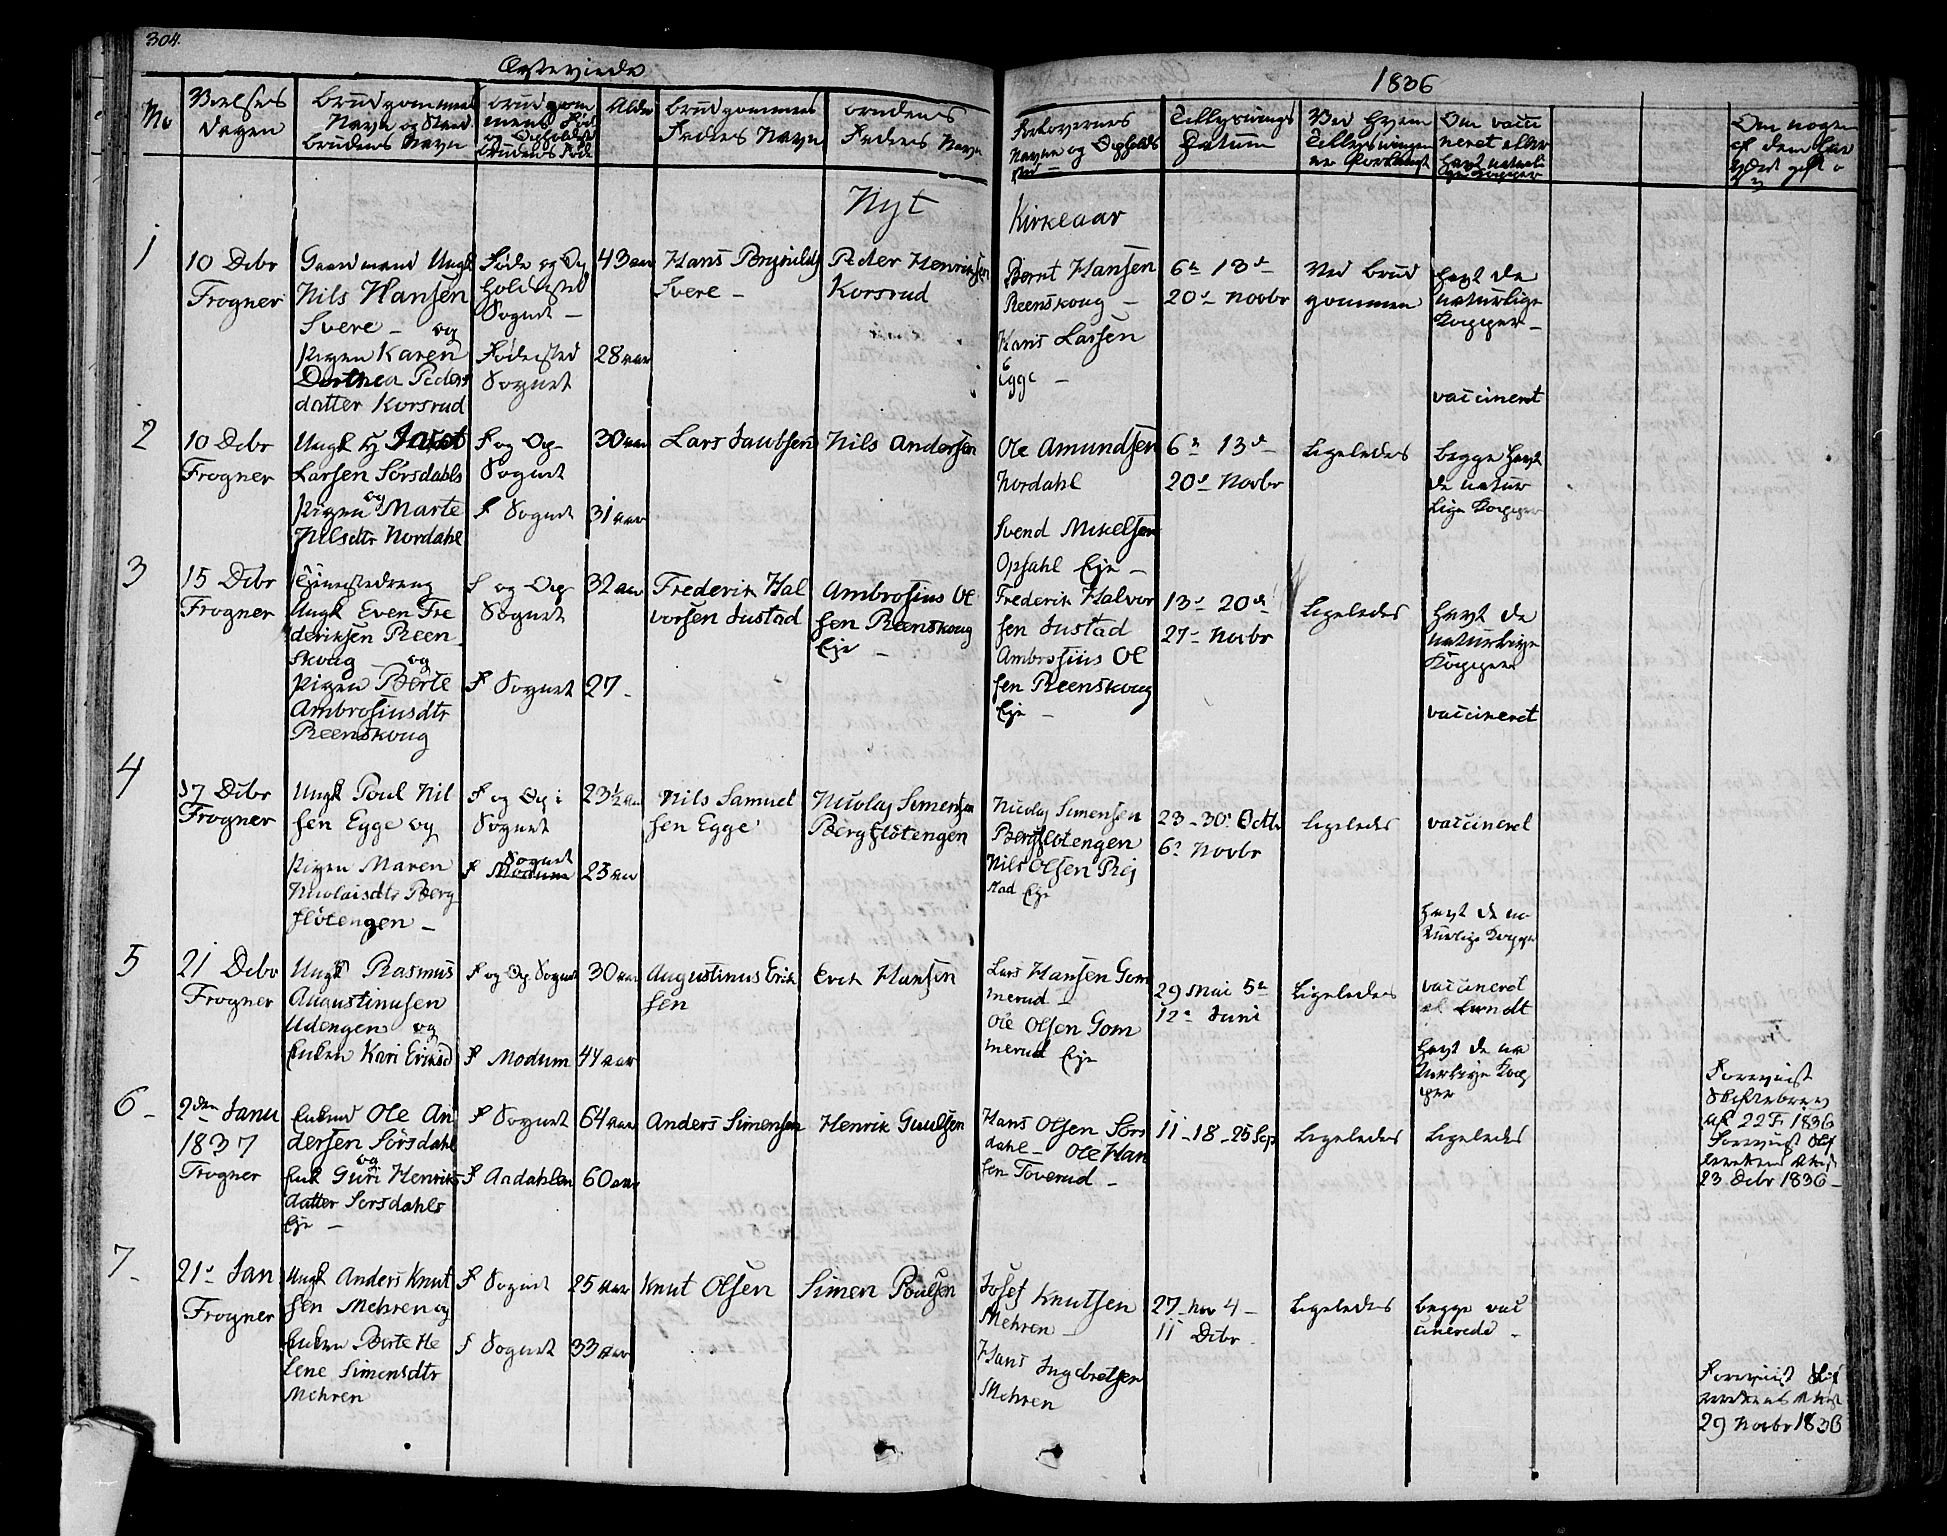 304.
Ægteviede
1836
No
Vielses
dagen
Brudgommens
Navn og Stand
brudens Navn
Alder
brudgommens
Faders Navn
brudens
Faders Navn
Forlovernes
Navne og Opholds
sted
Tillysnings
Datum
Ved hvem
Tillysningen
er forlangt
Om vacci
neret eller
havt naturli
ge Kopper
Om nogen
af dem har
været gift
Nyt
Kirkeaar
1
10 Debr
Frogner
Gaardmand Ungk
Nils Hansen
Svere – og
Pigen Karen
Dorthea Peders
datter Korsrud
Føde og Op
holdssted
Sognet –
Fødested
Sognet
43 aar
28 aar
Hans Brynilds
Svere –
Peder Henriksen
Korsrud
Bernt Hansen
Reenskoug –
Hans Larsen
Egge –
6te 13de
20de Novbr
Ved Brud
gommen
havt de
naturlige
Kopper –
vaccineret
2
10 Debr
Frogner
Ungk Hj Jacob
Larsen Sørsdahls
og
Pigen Marte
Nilsdtr Nordahl
F og Op
Sognet
F Sognet
30 aar
31 aar
Lars Jacobsen
Nils Andersen
Ole Amundsen
Nordahl
Svend Mikelsen
Opsahl Eje –
6te 13de
20de Novbr
Ligeledes
begge havt
de natur
lige Kopper
3
15 Debr
Frogner
Tjenestedreng
Ungk Even Fre
deriksen Reen
skoug – og
Pigen Berte
Ambrosiusdtr
Reenskoug
F og Op
Sognet
F Sognet
32 aar
27 –
Frederik Hal
vorsen Justad
Ambrosius Ol
sen Reenskoug
Eje –
Frederik Halvor
sen Justad
Ambrosius Ol
sen Reenskoug
Eje –
13de 20de
27de Novbr
Ligeledes
havt de
naturlige
Kopper
vaccineret
4
17 Debr
Frogner
Ungk Poul Nil
sen Egge og
Pigen Maren
Nicolaisdtr Berg
flötengen –
F og Op i
Sognet
Sognet
F Modum
23½ aar
23 aar
Nils Samuel
sen Egge
Nicolay Simensen
Bergflötengen
Nicolay Simensen
Bergflötengen
Nils Olsen Rej
stad Eje
23 – 30te Octbr
6te Novbr
Ligeledes
vaccineret
havt de na
turlige Kopper
5
21 Debr
Frogner
Ungk Rasmus
Augustinusen
Udengen og
Enken Kari Eriksd
F og Op Sognet
F Modum
30 aar
44 aar
Augustinus Erik
sen
Erik Hansen
Lars Hansen Gom
merud –
Ole Olsen Gom
merud Eje
29 Mai 5te
12te Juni
Ligeledes
vaccineret
af Lundt
havt de na
turlige Kop
per
6 –
2den Janu
1837
Frogner
Enkmd Ole An
dersen Sörsdahl
og
Enk Guri Henriks
datter Sorsdahls
Eje –
F Sognet
F Aadahlen
64 aar
60 aar
Anders Simensen
Henrik Guulsen
Hans Olsen Sörs
dahl – Ole Han
sen Toverud –
11 – 18 – 25 Sep
Ligeledes
Ligeledes
Forevist
Skiftebrev
af 22 F 1836
Forevist
23 Debr 1836 –
7 –
21de Jan
Frogner
Ungk Anders Knut
sen Mehren og
Enken Birte He
lene Simensdtr
Mehren
F Sognet
F Sognet
25 aar
33 aar
Knut Olsen
Simen Poulsen
Josef Knutsen
Mehren –
Hans Ingebretsen
Mehren
27 – Nov 4 –
11 Debr –
Ligeledes
begge vac
cinerede –
Forevist
29 Novbr 1836